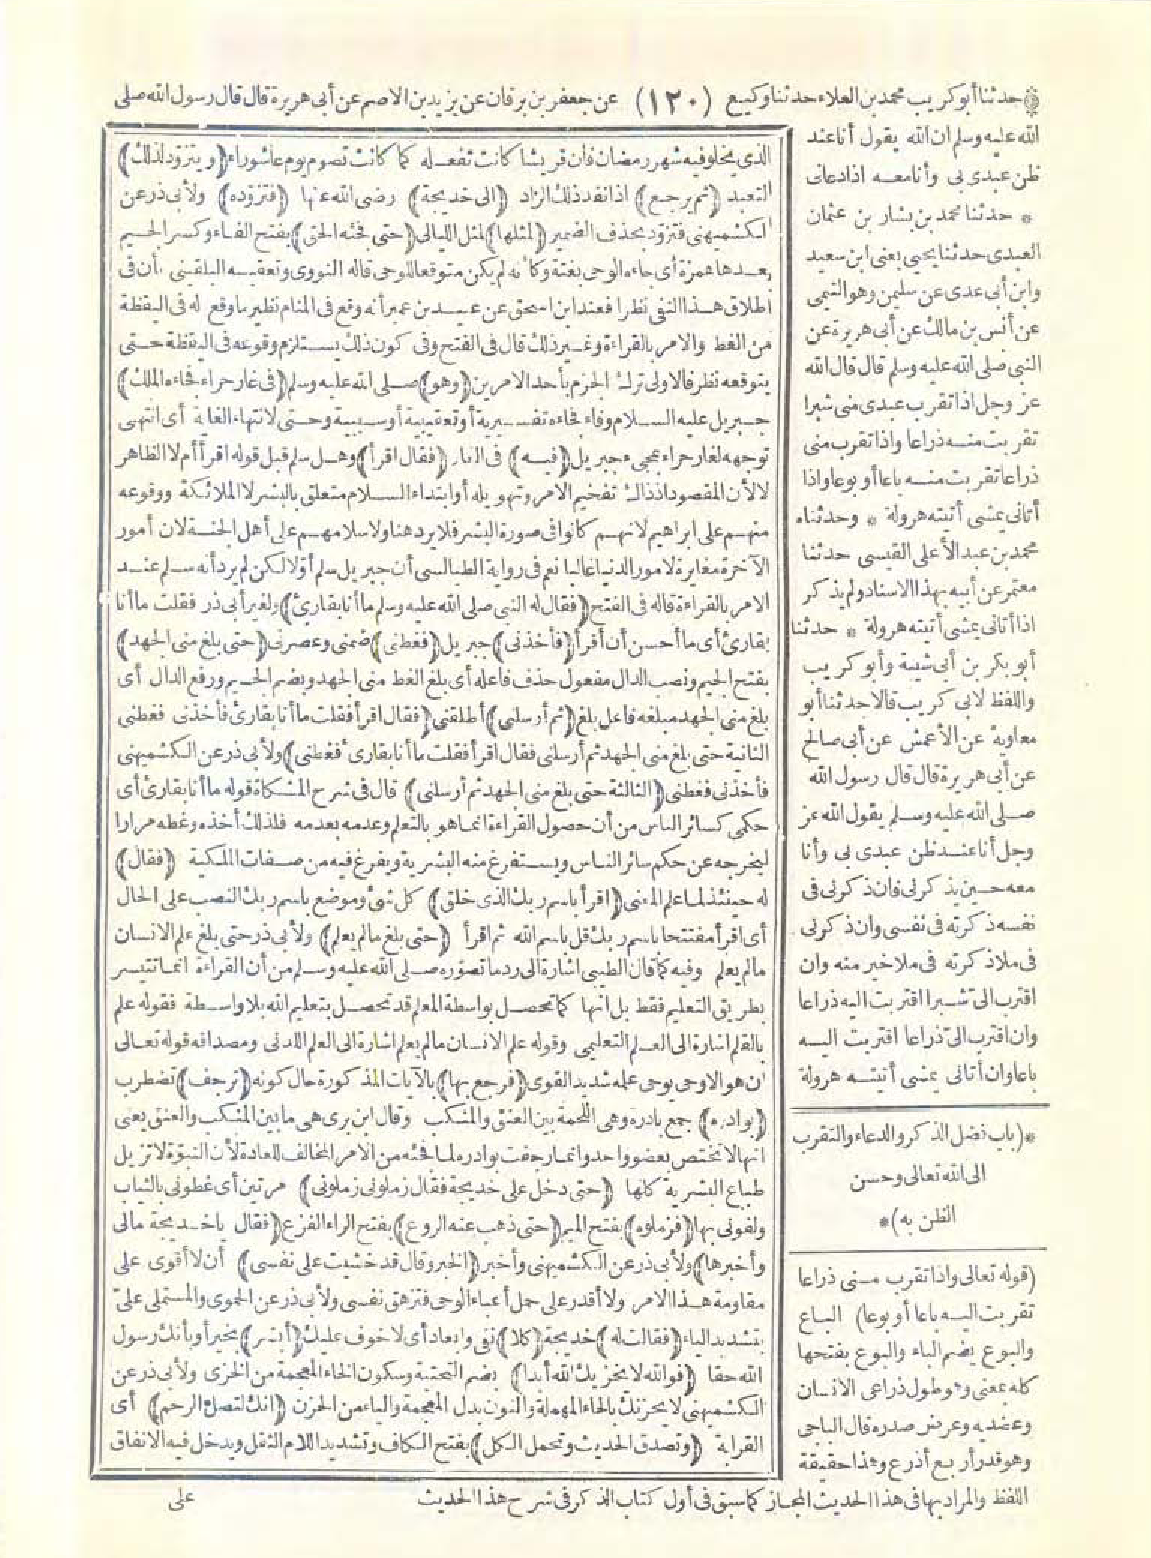 * حدثنا أبو كريب محمد بن العلاء حدثنا وكيع (١٢٠) عن جعفر بن برقان عن يزيد بن الاصم عن أبى هريرة قال قال رسول الله صلى
الله عليه وسلم ان الله يقول أنا عند
ظن عبدى بى وأنا معه اذا دعانى
* حدثنا محمد بن بشار بن عثمان
العبدى حدثنا يحيى يعنى ابن سعيد
وابن أبى عدى عن سليمن وهو التيمى
عن أنس بن مالك عن أبى هريرة عن
النبى صلى الله عليه وسلم قال قال الله
عز وجل اذا تقرب عبدى منى شبرا
تقربت منه ذراعا واذا تقرب منى
ذراعا تقربت منه باعا أو بوعا واذا
أتانى يمشى أتيته هرولة * وحدثناه
محمد بن عبد الأعلى القيسى حدثنا
معتمر عن أبيه بهذا الاسناد ولم يذكر
اذا أتانى يمشى أتيته هرولة * حدثنا
أبو بكر بن أبى شيبة وأبو كريب
واللفظ لابى كريب قالا حدثنا أبو
معاوية عن الأعمش عن أبى صالح
عن أبى هريرة قال قال رسول الله
صلى الله عليه وسلم يقول الله عز
وجل أنا عند ظن عبدى بى وأنا
معه حين يذكرنى فان ذكرنى فى
نفسه ذكرته فى نفسى وان ذكرنى
فى ملا ذكرته فى ملا خير منه وان
اقترب الىّ شبرا اقتربت اليه ذراعا
وان اقترب الىّ ذراعا اقتربت اليه
باعا وان أتانى يمشى أتيته هرولة
*(باب فضل الذكر والدعاء والتقرب
الى الله تعالى وحسن
الظن به)*
(قوله تعالى واذا تقرب منى ذراعا
تقربت اليه باعا أو بوعا) الباع
والبوع بضم الباء والبوع بفتحها
كله بمعنى وهو طول ذراعى الانسان
وعضديه وعرض صدره قال الباجى
وهو قدر أربع أذرع وهذا حقيقة
اللفظ والمراد بها فى هذا الحديث المجاز كما سبق فى أول كتاب الذكر فى شرح هذا الحديث
الذى يخلو فيه شهر رمضان فان قريشا كانت تفعله كما كانت تصوم يوم عاشوراء (ويتزود لذلك)
التعبد (ثم يرجع) اذا نفد ذلك الزاد (الى خديجة) رضى الله عنها (فتزوده) ولأبى ذر عن
الكشميهنى فتزود بحذف الضمير (لمثلها) لمثل الليالى (حتى فجئه الحق) بفتح الفاء وكسر الجيم
بعدها همزة أى جاءه الوحى بغتة وكأنه لم يكن متوقعا للوحى قاله النووى وتعقبه البلقينى بأن فى
اطلاق هذا النفى نظرا فعند ابن اسحق عن عبيد بن عمير أنه وقع فى المنام نظير ما وقع له فى اليقظة
من الغط والامر بالقراءة وغير ذلك قال فى الفتح وفى كون ذلك يستلزم وقوعه فى اليقظة حتى
يتوقعه نظر فالاولى ترك الجزم بأحد الامرين (وهو) صلى الله عليه وسلم (فى غار حراء فجاءه الملك)
جبريل عليه السلام وفاء فجاءه تفسيرية أو تعقيبية أو سببية وحتى لانتهاء الغاية أى انتهى
توجهه لغار حراء بمجىء جبريل (فيه) فى الغار (فقال اقرأ) وهل سلم قبل قوله اقرأ أم لا الظاهر
لا لأن المقصود اذ ذاك تفخيم الامر وتهويله أو ابتداء السلام متعلق بالبشر لا الملائكة ووقوعه
منهم على ابراهيم لانهم كانوا فى صورة البشر فلا يرد هنا ولا سلامهم على أهل الجنة لان أمور
الآخرة مغايرة لامور الدنيا غالبا نعم فى رواية الطيالسى أن جبريل سلم أولا لكن لم يرد أنه سلم عند
الامر بالقراءة قاله فى الفتح (فقال له النبى صلى الله عليه وسلم ما أنا بقارئ) ولغير أبى ذر فقلت ما أنا
بقارئ أى ما أحسن أن أقرأ (فأخذنى) جبريل (فغطنى) ضمنى وعصرنى (حتى بلغ منى الجهد)
بفتح الجيم ونصب الدال مفعول حذف فاعله أى بلغ الغط منى الجهد وبضم الجيم ورفع الدال أى
بلغ منى الجهد مبلغه فاعل بلغ (ثم أرسلنى) أطلقنى (فقال اقرأ فقلت ما أنا بقارئ فأخذنى فغطنى
الثانية حتى بلغ منى الجهد ثم أرسلنى فقال اقرأ فقلت ما أنا بقارئ فغطنى) ولأبى ذر عن الكشميهنى
فأخذنى فغطنى (الثالثة حتى بلغ منى الجهد ثم أرسلنى) قال فى شرح المشكاة قوله ما أنا بقارئ أى
حكمى كسائر الناس من أن حصول القراءة انما هو بالتعلم وعدمه بعدمه فلذلك أخذه وغطه مرارا
ليخرجه عن حكم سائر الناس ويستفرغ منه البشرية ويفرغ فيه من صفات الملكية (فقال)
له حينئذ لما علم المعنى (اقرأ باسم ربك الذى خلق) كل شئ وموضع باسم ربك النصب على الحال
أى اقرأ مفتتحا باسم ربك قل باسم الله ثم اقرأ (حتى بلغ ما لم يعلم) ولأبى ذر حتى بلغ علم الانسان
ما لم يعلم وفيه كما قال الطيبى اشارة الى رد ما تصوره صلى الله عليه وسلم من أن القراءة انما تتيسر
بطريق التعليم فقط بل انها كما تحصل بواسطة المعلم قد تحصل بتعليم الله بلا واسطة فقوله علم
بالقلم اشارة الى العلم التعليمى وقوله علم الانسان ما لم يعلم اشارة الى العلم اللدنى ومصداقه قوله تعالى
ان هو الا وحى يوحى علمه شديد القوى (فرجع بها) بالآيات المذكورة حال كونه (ترجف) تضطرب
(بوادره) جمع بادرة وهى اللحمة بين العنق والمنكب وقال ابن برى هى ما بين المنكب والعنق يعنى
انها لا تختص بعضو واحد وانما رجفت بوادره لما فجئه من الامر المخالف للعادة لأن النبوة لا تزيل
طباع البشرية كلها (حتى دخل على خديجة فقال زملونى زملونى) مرتين أى غطونى بالثياب
ولفونى بها (فزملوه) بفتح الميم (حتى ذهب عنه الروع) بفتح الراء الفزع (فقال يا خديجة مالى
وأخبرها) ولأبى ذر عن الكشميهنى وأخبر (الخبر وقال قد خشيت على نفسى) أن لا أقوى على
مقاومة هذا الامر ولا أقدر على حمل أعباء الوحى فتزهق نفسى ولأبى ذر عن الحموى والمستملى علىّ
بتشديد الياء (فقالت له) خديجة (كلا) نفى وابعاد أى لا خوف عليك (أبشر) بخير أو بأنك رسول
الله حقا (فوالله لا يخزيك الله أبدا) بضم التحتية وسكون الخاء المعجمة من الخزى ولأبى ذر عن
الكشميهنى لا يحزنك بالحاء المهملة والنون بدل المعجمة والياء من الحزن (انك لتصل الرحم) أى
القرابة (وتصدق الحديث وتحمل الكل) بفتح الكاف وتشديد اللام الثقل ويدخل فيه الانفاق
على